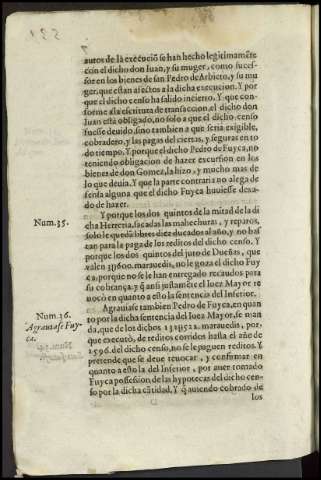 autos de la execució se han hecho legitimamēte
con el dicho don Iuan, y su muger, como suces-
sor en los bienes de san Pedro de Arbieto, y su mu
ger, que estan afectos a la dicha execucion. Y por
que el dicho censo ha salido incierto. Y que con-
forme a la escritura de transaccion, el dicho don
Iuan està obligado, no solo a que el dicho censo
fuesse devido, sino tambien a que seria exigible,
cobradero, y las pagas del ciertas, y seguras en to
do tiempo. Y porque el dicho Pedro de Fuyca, no
teniendo obligacion de hazer excursion en los
bienes de don Gomez, la hizo, y mucho mas de
lo que deuia. Y que la parte contraria no alega de
fensa alguna que el dicho Fuyca huuiesse dexa-
do de hazer.
Num. 35.
Y porque los dos quintos de la mitad de la di
cha Herreria, sacadas las malhechuras, y reparos,
solo le quedã libres diez ducados al año, y no bas
tan para la paga de los reditos del dicho censo. Y
porque los dos quintos del juro de Dueñas, que
valen 31600. marauedis, no le goza el dicho Fuy
ca, porque no se le han entregado recaudos para
su cobrança, y q̃ ansi justamēte el Iuez Mayor re
uocò en quanto a esto la sentencia del Inferior.
Num. 36.
Agrauiase Fuy-
ca.
Agrauiase tambien Pedro de Fuyca, en quan
to por la dicha sentencia del Iuez Mayor, se man
da, que de los dichos marauedis, por-
que executò, de reditos corridos hasta el año de
1596. del dicho censo, no se le paguen reditos. Y
pretende que se deue reuocar, y confirmar en
quanto a esto la del Inferior, por auer tomado
Fuyca possession, de las hypotecas del dicho cen-
so por la dicha cãtidad, Y q̃ auiendo cobrado de
los